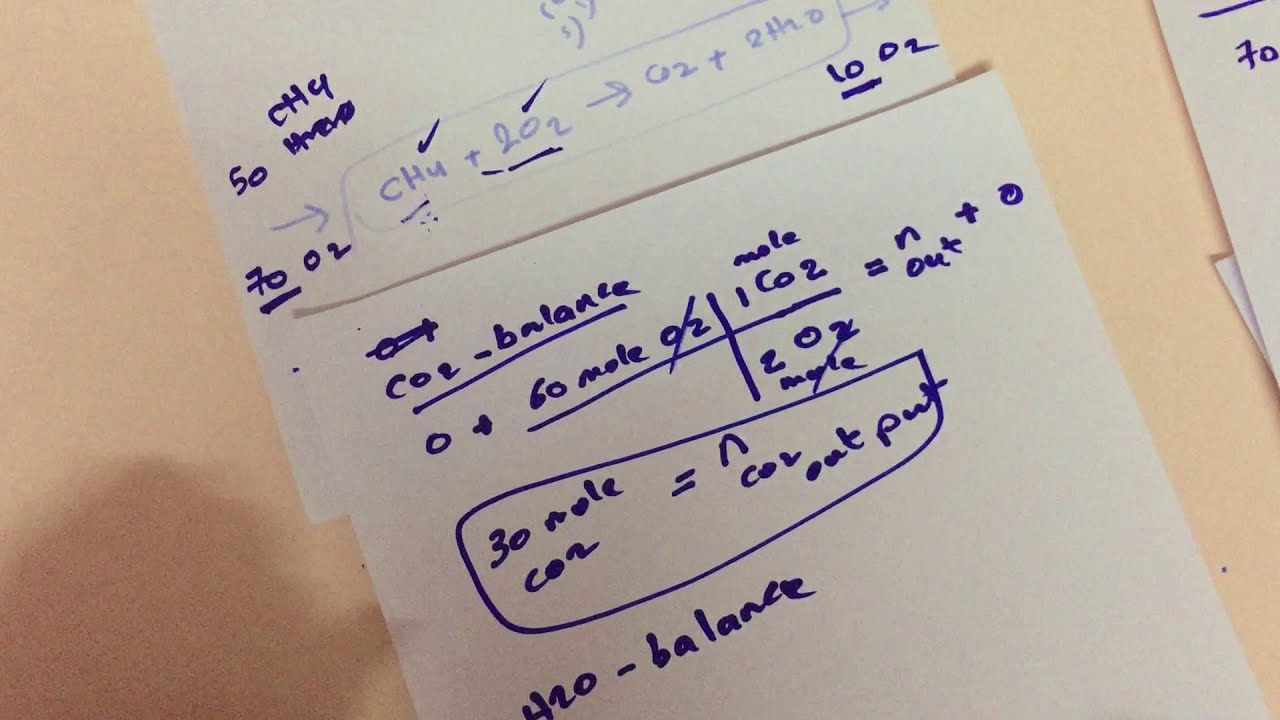 CH4
50
CH4 + 2O2 → CO2 + 2H2O
10 O2
→
70 O2
70
CO2 - balance
0 + 60 mole O2 | 1 mole CO2 = n out + 0
2 O2 mole
30 mole CO2 = n CO2 output
H2O - balance